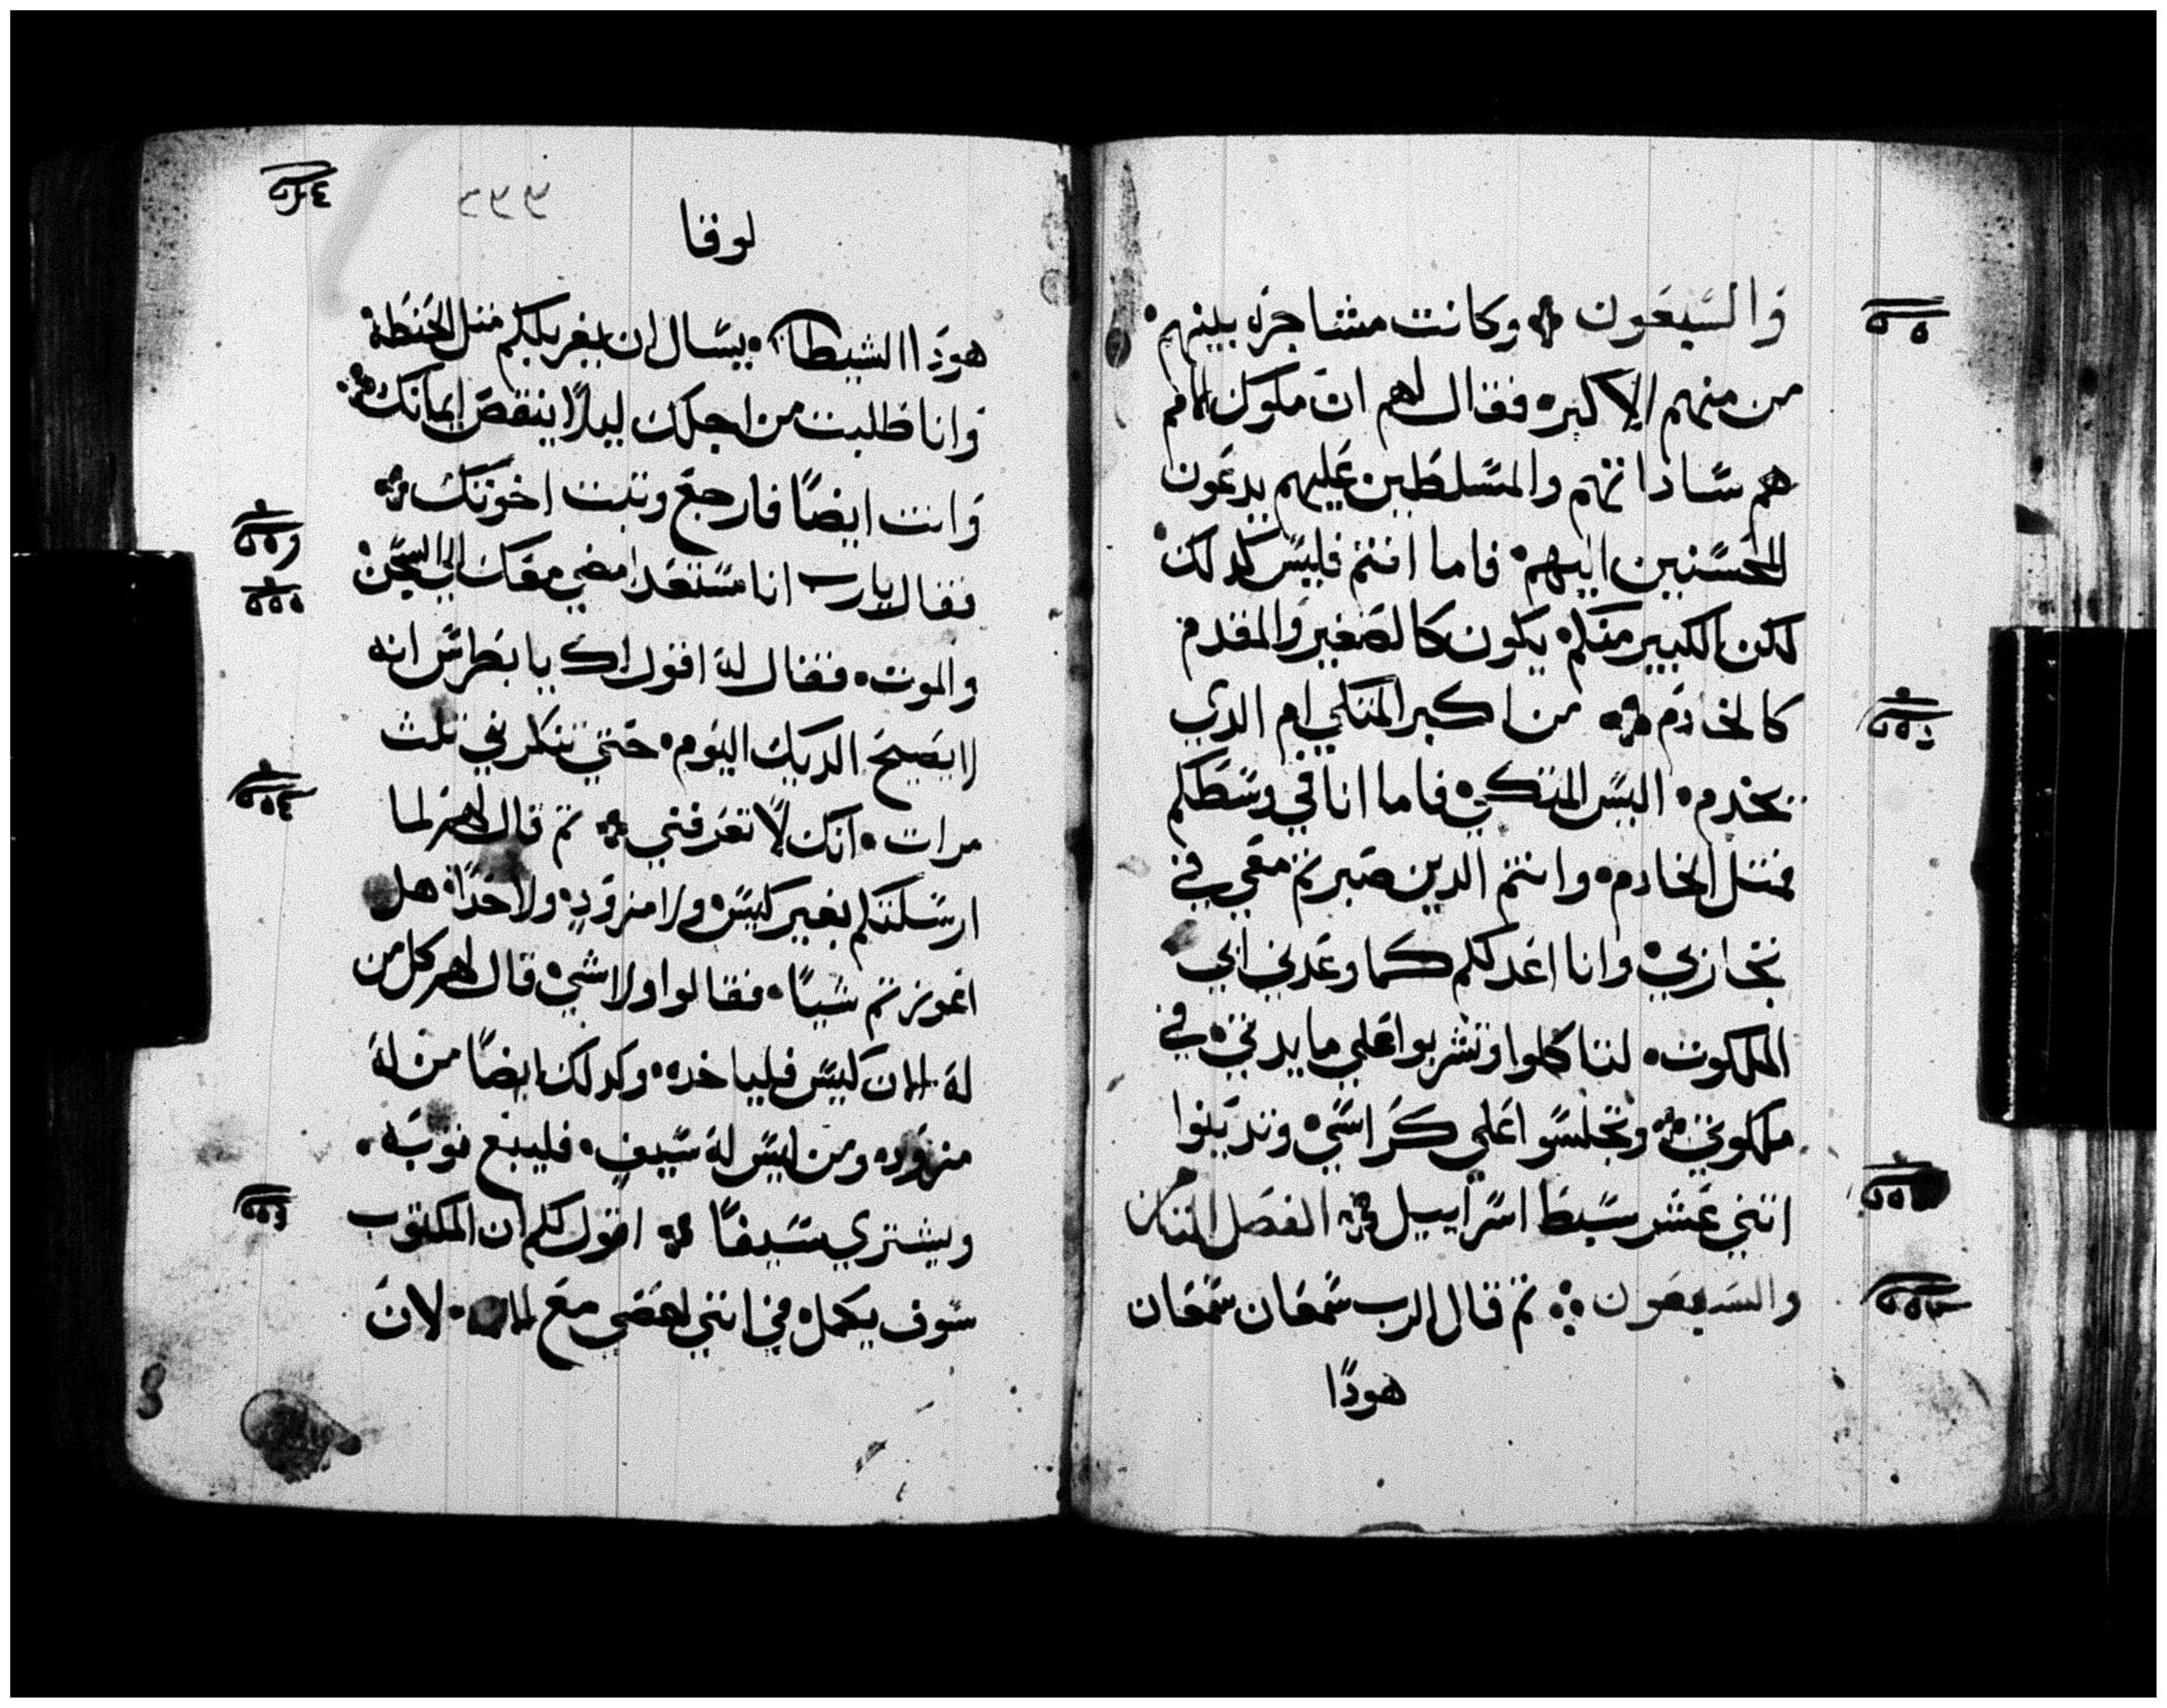 وَالسَبعَون وكانت مشاجرَة بينهم
من منهم الاكبر فقال لهم ان ملوك الامم
هم سَاداتهم والمسَلطَين عَليهم يدعَون
المحسَنين اليهم فاما انتم فليسَ كدلك
لكن الكبير منكم يكون كالصَغير وَالمقدم
كالخادَم من اكبر المتكي ام الدي
يخدم اليسَ المتكي فاما انا في وسَطَكم
فمتل الخادم وانتم الدين صَبرتم مَعي في
تجاربي وانا اعَد لكم كما وعَدني ابي
الملكوت لتاكلوا وتشربوا عَلي مايدتي في
ملكوتي وتجلسَوا عَلي كرَاسَي وتديَنوا
اتني عَشر سَبطَ اسَراييل الفصَل التامن
والسَبعَون تم قال الرب سَمعَان سَمعَان
هودَا
لوقا
هودَا الشيطان يسَال ان يغربلكم متل الحنطَة
وَانا طَلبت من اجلك ليلاً ينقصَ ايمانك
وَانت ايضاً فارجعَ وتبت اخوتك
فقال يارب انا مسَتعَد امضي معَك الي السَجن
والموت فقال لهَ اقول لك يا بطَرسَ انه
لا يصَيحَ الديك اليَوم حَتي تنكرني تلت
مرات انك لاَ تعَرفني تم قال لهم لما
ارسَلتكم بغير كيسَ ولا مزوَد ولا حَدا هل
اعَوزتم شياً فقالوا ولا شي قال لهم كل من
لهَ الان كيسَ فلياخده وكدلك ايضاً من لهَ
مزوَد ومن ليسَ لهَ سَيف فليبع توبَه
ويشتري سَيفاً اقول لكم ان المكتوب
سَوف يكمل في انني احصَي معَ لانَ